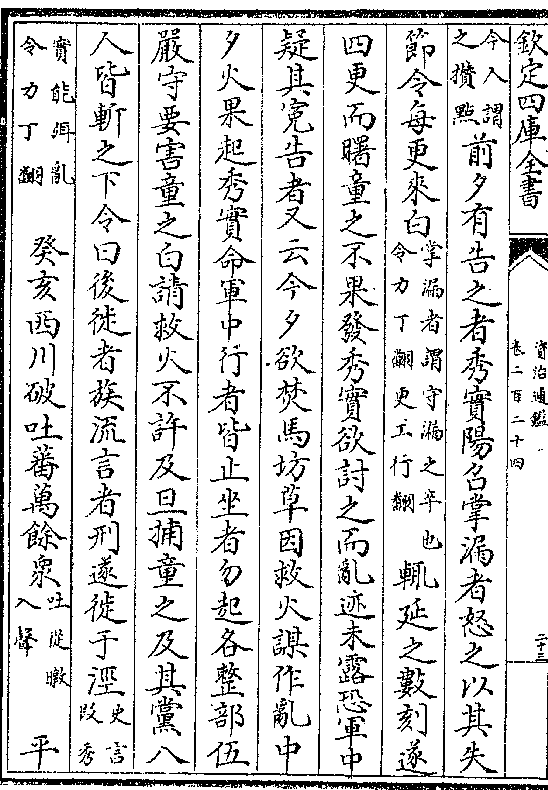 欽定四庫全書
資治通鑑
卷二百二十四
二十三
今人謂
之攢點
前夕有告之者秀實陽召掌漏者怒之以其失
節令每更來白
掌漏者謂守漏之卒也
令力丁翻更工行翻
輒延之數刻遂
四更而曙童之不果發秀實欲討之而亂迹未露恐軍中
疑其寃告者又云今夕欲焚馬坊草因救火謀作亂中
夕火果起秀實命軍中行者皆止坐者勿起各整部伍
嚴守要害童之白請救火不許及旦捕童之及其黨八
人皆斬之下令曰後徙者族流言者刑遂徙于涇
史言
段秀
實能弭亂
令力丁翻
癸亥西川破吐蕃萬餘衆
吐從暾
入聲
平